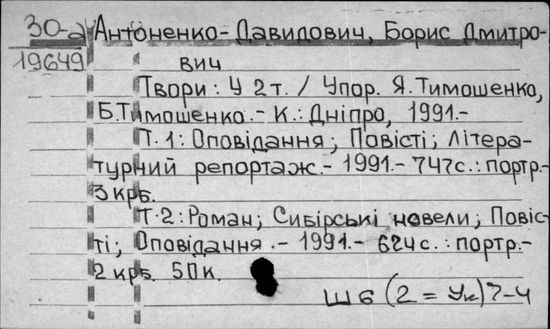 30-а Антоненко-Давидович, Борис Дмитро-
19649
вич
Твори: У 2т. / Упор. Я.Тимошенко,
Б.Тимошенко.- К.: Дніпро, 1991.-
Т.1: Оповідання; Повісті; Літера-
турний репортаж.- 1991.- 747с.: портр.-
3 крб.
Т.2: Роман; Сибірські новели; Повіс-
ті; Оповідання.- 1991.- 624с.: портр.-
2 крб. 50к.
Ш6(2=Ук)7-4